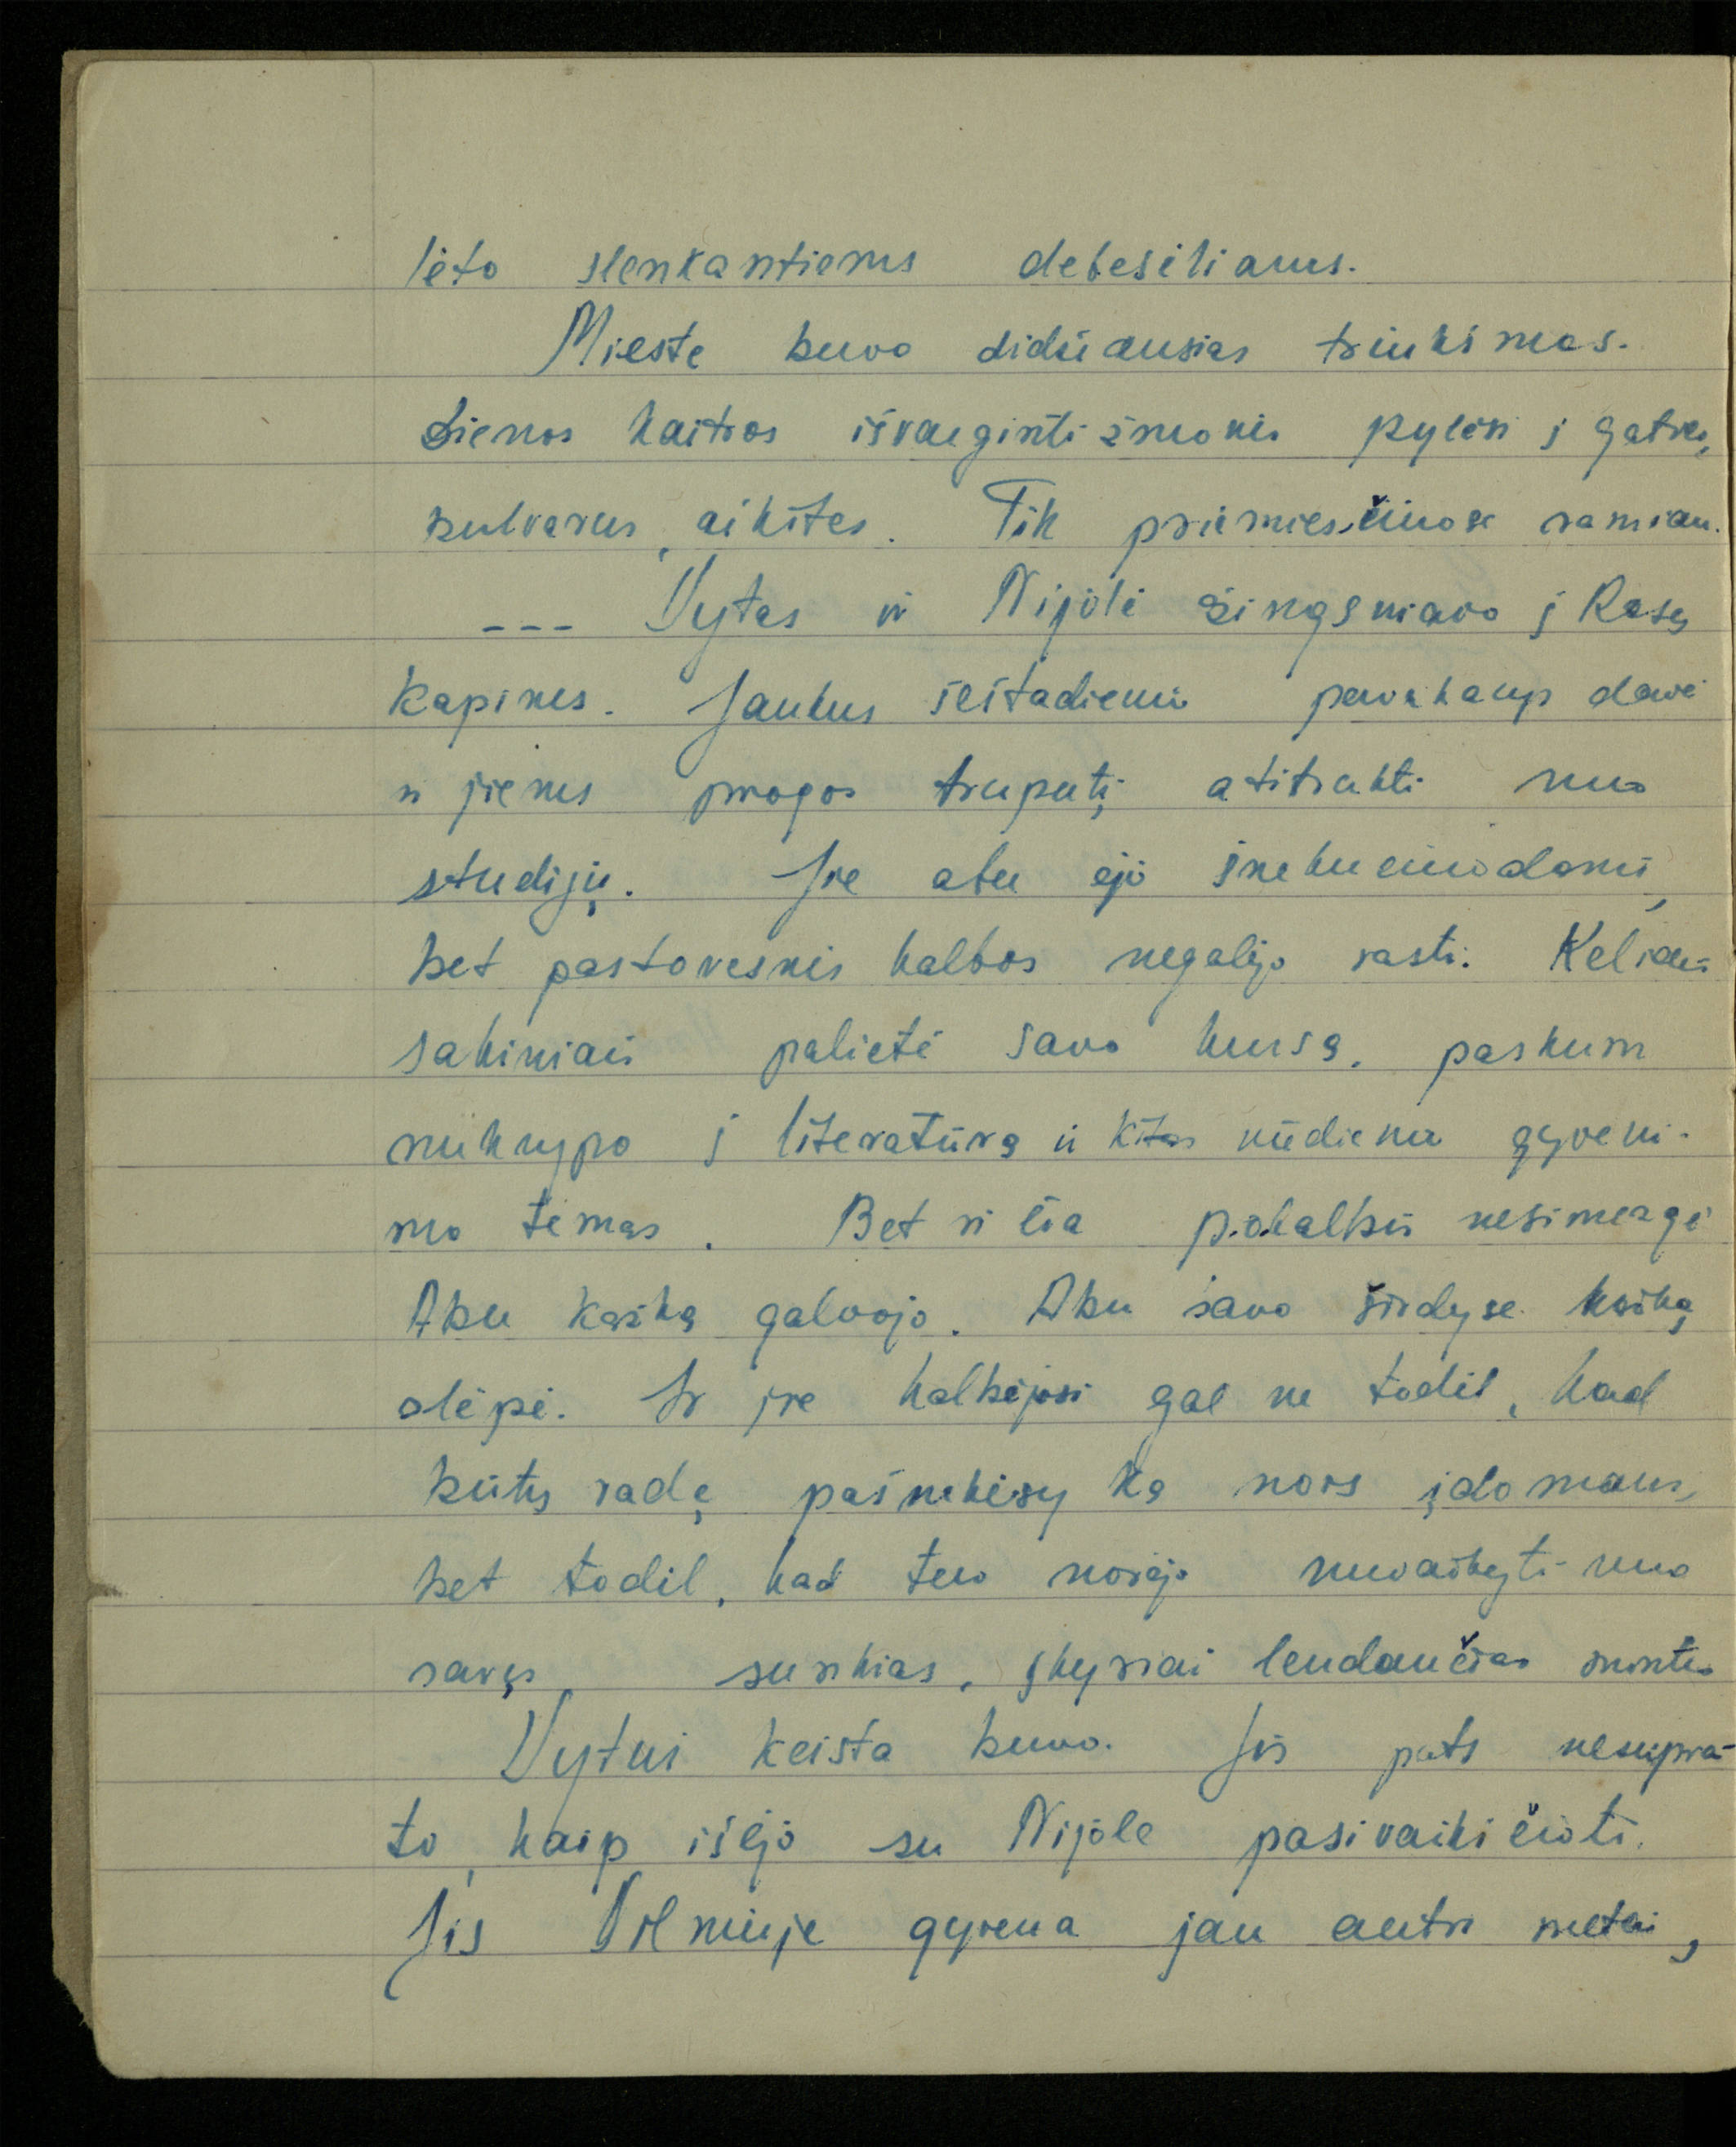 lėto slenkantiems debesėliams.
Mieste buvo didžiausias triukšmas.
Dienos kaitros išvarginti žmonės pylėsi į gatves,
bulvarus, aikštes. Tik priemiesčiuose ramiau.
--- Vytas ir Nijolė žingsniavo į Rasų
kapines. Jaukus šeštadienio pavakarys davė
ir jiems progos truputį atitrūkti nuo
studijų. Jie abu ėjo šnekučiuodami,
bet pastovesnės kalbos negalėjo rasti. Keliais
sakiniais palietė savo kursą, paskum
nukrypo į literatūrą ir kitas nūdienio gyveni-
mo temas. Bet ir čia pokalbis nesimezgė
Abu kažką galvojo. Abu savo širdyse kažką
slėpė. Ir jie kalbėjosi gal ne todėl, kad
būtų radę pašnekesy ką nors įdomaus,
bet todėl, kad tuo norėjo nuvaikyti nuo
savęs sunkias, įkyriai lendančias mintis
Vytui keista buvo. Jis pats nesupra-
to, kaip išėjo su Nijole pasivaikščioti.
Jis Vilniuje gyvena jau antri metai,